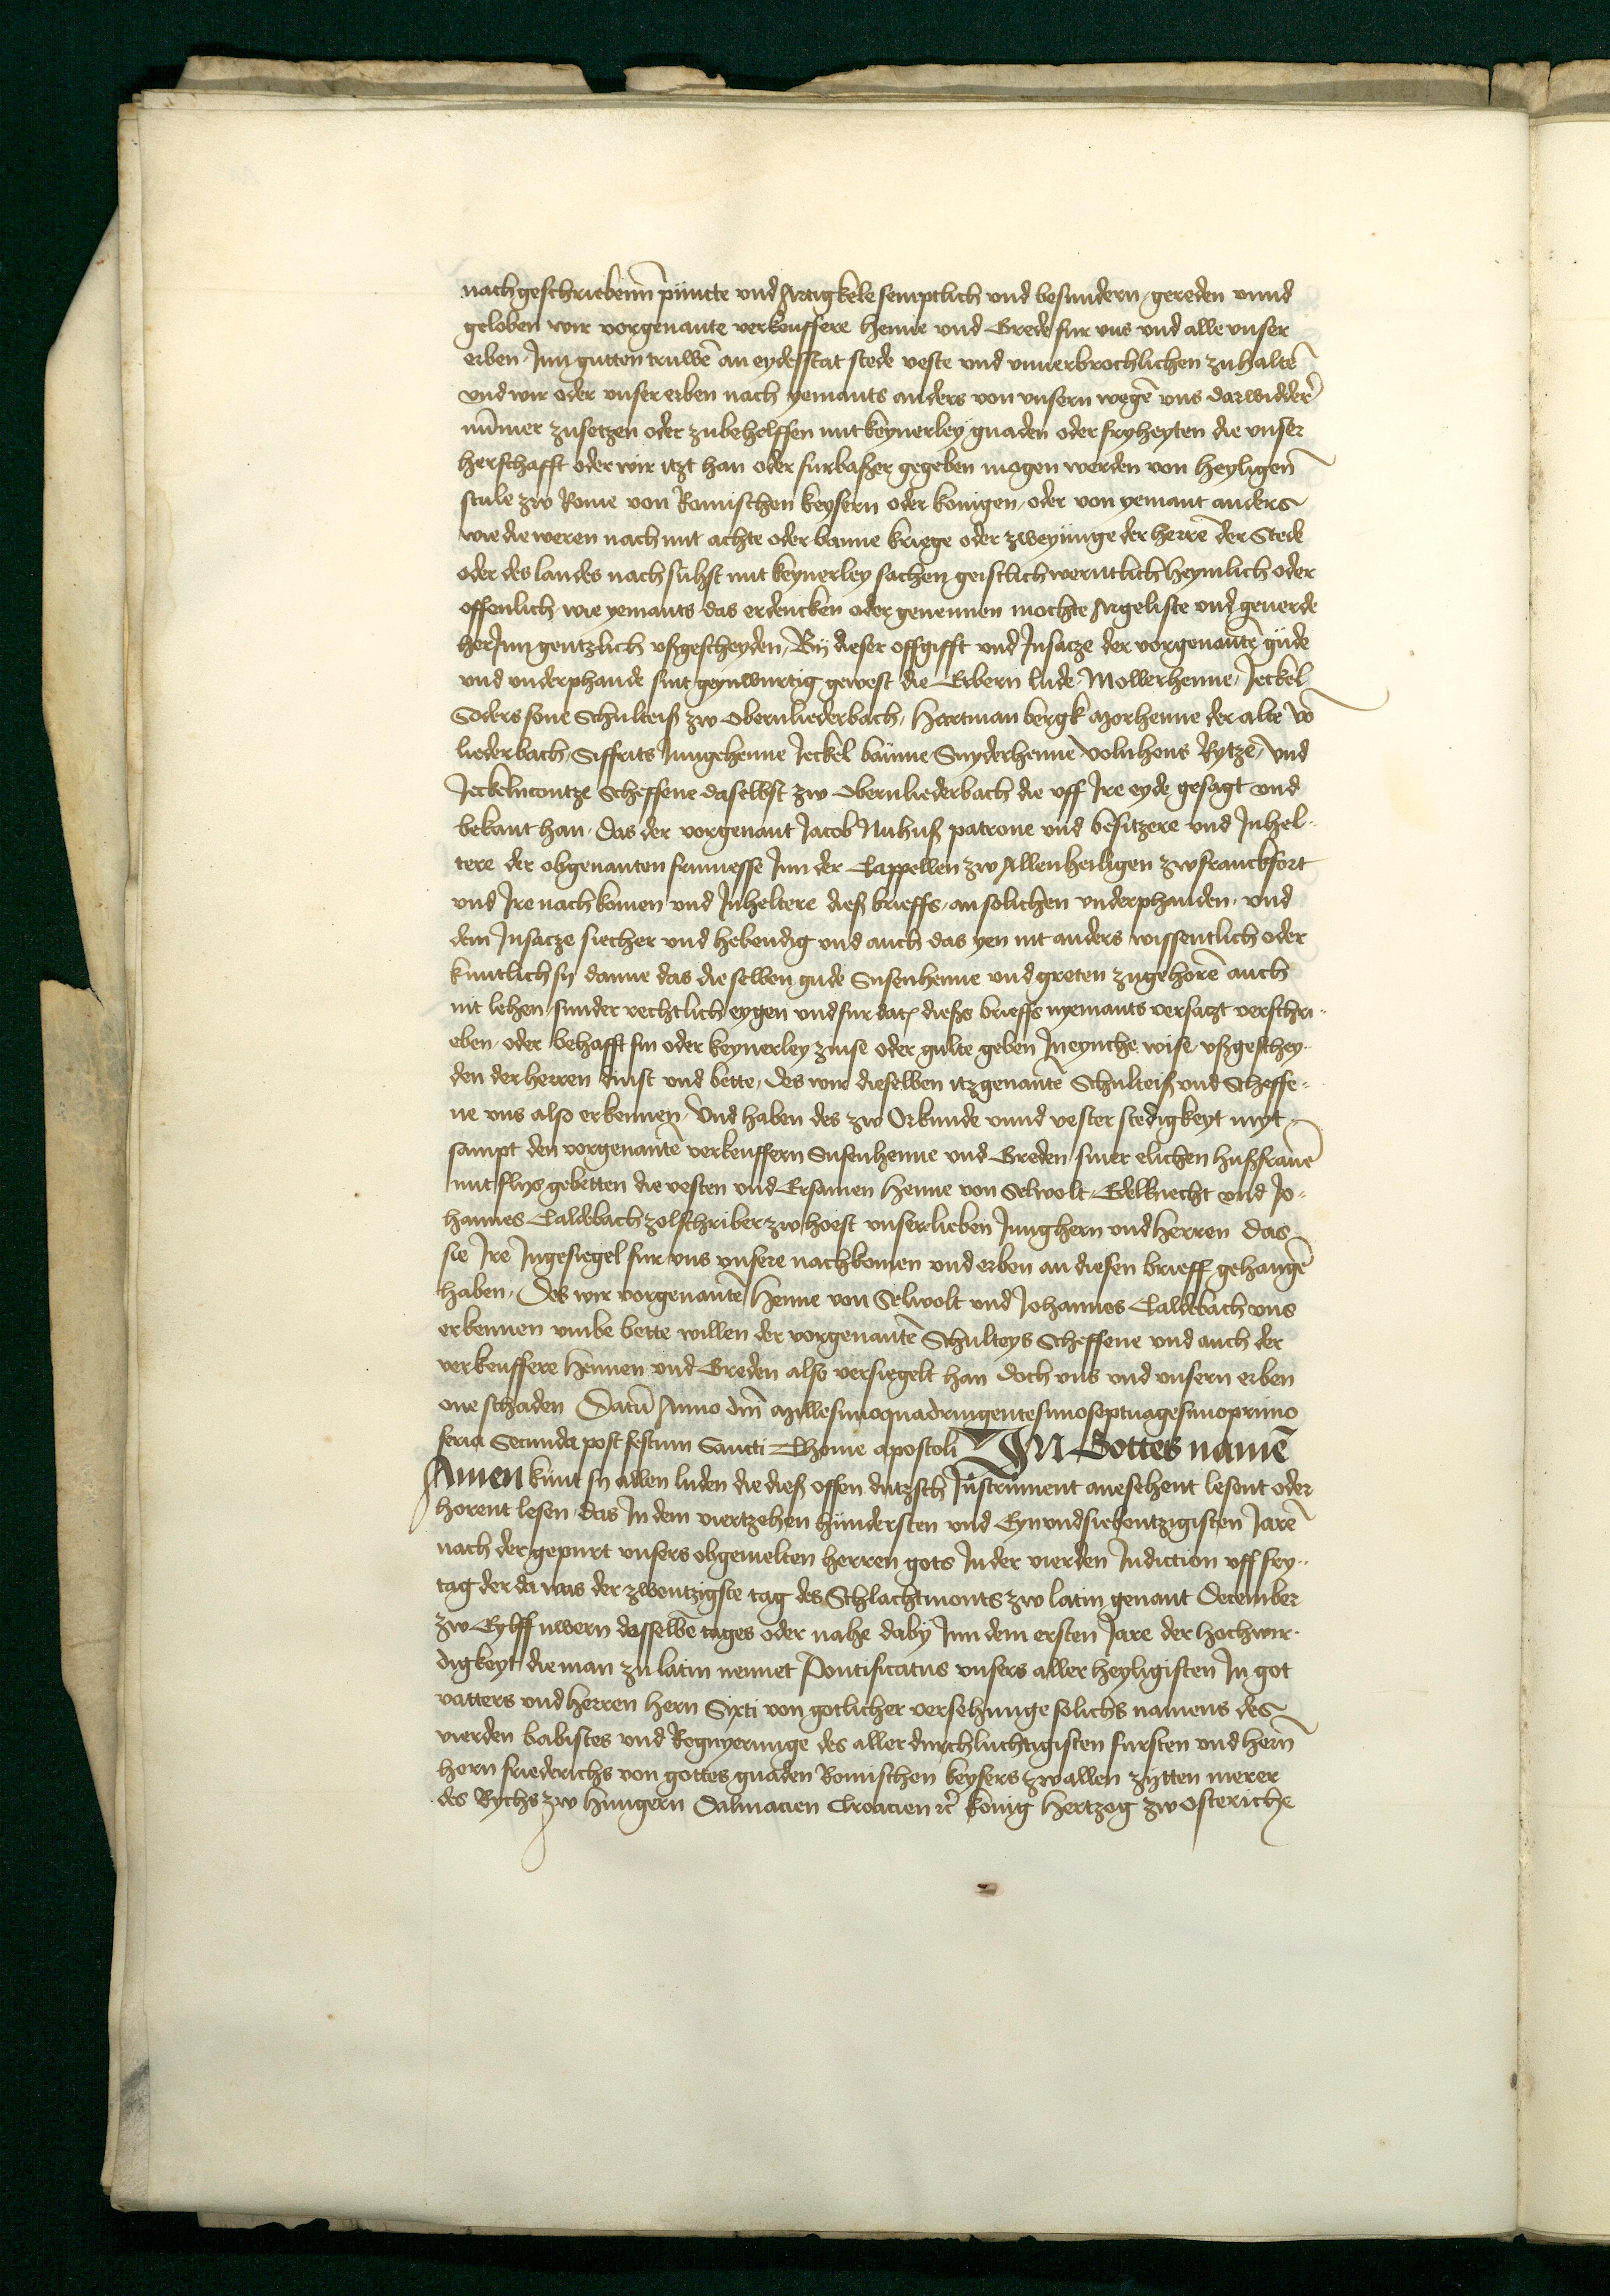 nachgeschriebenn̄ püncte vnd Artigkele semptlich vnd besundern, gereden vnnd
geloben wir vorgenante verkeuffere Henne vnd Grede fur vns vnd alle vnser
erben, Inn gutten truwē an eydesstat stede veste vnd vnuerbrochlichen zuhaltē
vnd wir oder vnser erben nach yemants anders von vnsern wegē vns darwidder
nūmer zusetzen oder zubehelffen mit keynerley gnaden oder fryheyten die vnser
herschafft oder wir itzt han oder furbaßer gegeben mogen werden von heyligen̄
stule zw Rome von Romischen keysern oder konigen, oder von yemant anders
wie die weren nach mit achte oder banne kriege oder zweyünge der herrē der Stede
oder des landes nach süßt mit keynerley sachen geistlich werntlich heymlich oder
offenlich wie yemants das erdencken oder genennen mochte Argeliste vnd geuerde
herInn gentzlich vßgescheyden, By dieser offgifft vnd Insacze der vorgenantē güde
vnd vnderphande sint geynwurtig gewest die Erbern lude, Mollerhenne, Jeckel
Soders sone Schulteiß zw Obernliederbach, Hartman bergk Morhenne der alte vō
liederbach, Siffrits Jungehenne Jeckel baüme Snyderhenne Volnhens Rytze, vnd
Jeckelncontze Scheffene daselbst zw Obernliederbach die vff Ire eyde gesagt vnd
bekant han, das der vorgenant Jacob Nuhuß patrone vnd besitzere vnd Inhel-
tere der obgenanten frumesse Inn der Cappellen zw Allenheiligen zw franckfort
vnd Ire nachkomen vnd Inheltere dieß brieffs, an solichen vnderphanden, vnd
dem Insacze siecher vnd hebendig vnd auch das yen nit anders wissentlich oder
kuntlich sy danne das die selben gude Susenhenne vnd greten zugehorē auch
nit lehen, sunder rechtlich eygen vnd fur dat dieß brieffs nyemants versatzt verschri-
eben, oder behafft sin oder keynerley zinse oder gulte geben In eynche wise, vßgeschey-
den der herren dinst vnd bette, des wir dieselben itzgenantē Schulteiß vnd Scheffe-
ne vns also erkennen, Vnd haben des zw Orkunde vnnd vester stedigkeyt myt
sampt den vorgenantē verkeuffern Susenhenne vnd Greden siner elichen hußfrauē
mit flys gebetten die vesten vnd Ersamen Henne von Selwolt, Edelknecht vnd Jo-
hannes Caldebach zolschriber zw hoest vnser lieben Junghern vnd Herren das
sie Ire Ingesiegel fur vns vnsere nachkomen vnd erben an diesen brieff gehangē
haben, Des wir vorgenantē Henne von Selwolt vnd Johannes Caldebach vns
erkennen vmbe bette willen der vorgenantē Schulteys Scheffene vnd auch der
verkeuffere Hennen vnd Greden also versiegelt han doch vns vnd vnsern erben
one schaden Datū Anno dn̄i Millesimoquadringentesimoseptuagesimoprimo
feria Secunda post festum Sancti Thome apostoli IN Gottes namē
Amen künt sy allen luden die dieß offen dutzsch Instrument anesehent lesent oder
horent lesen, das In dem viertzehen hündersten vnd Eynvndsiebentzigisten Jarē
nach der gepurt vnsers obgemelten herren gots In der vierden Indiction vff fry-
tag der da was der zwentzigste tag des Schlachtmonts zw latin genant December
zw Eylff uwern desselbē tages oder nahe daby Inn dem ersten Jare der hochwir-
digkeyt, die man zu latin nennet Pontificatus vnsers aller heyligisten In got
vatters vnd herren hern Sixti von gotlicher versehunge solichs namens des
vierden babistes vnd Regnyerunge des aller durchluchtigisten fursten vnd hern̄
hern friederichs von gottes gnaden Romischen keysers zw allen zijtten merer
des Rychs zw Hungern Dalmacien Croacien ꝛc̄ konig Hertzog zw Osteriche